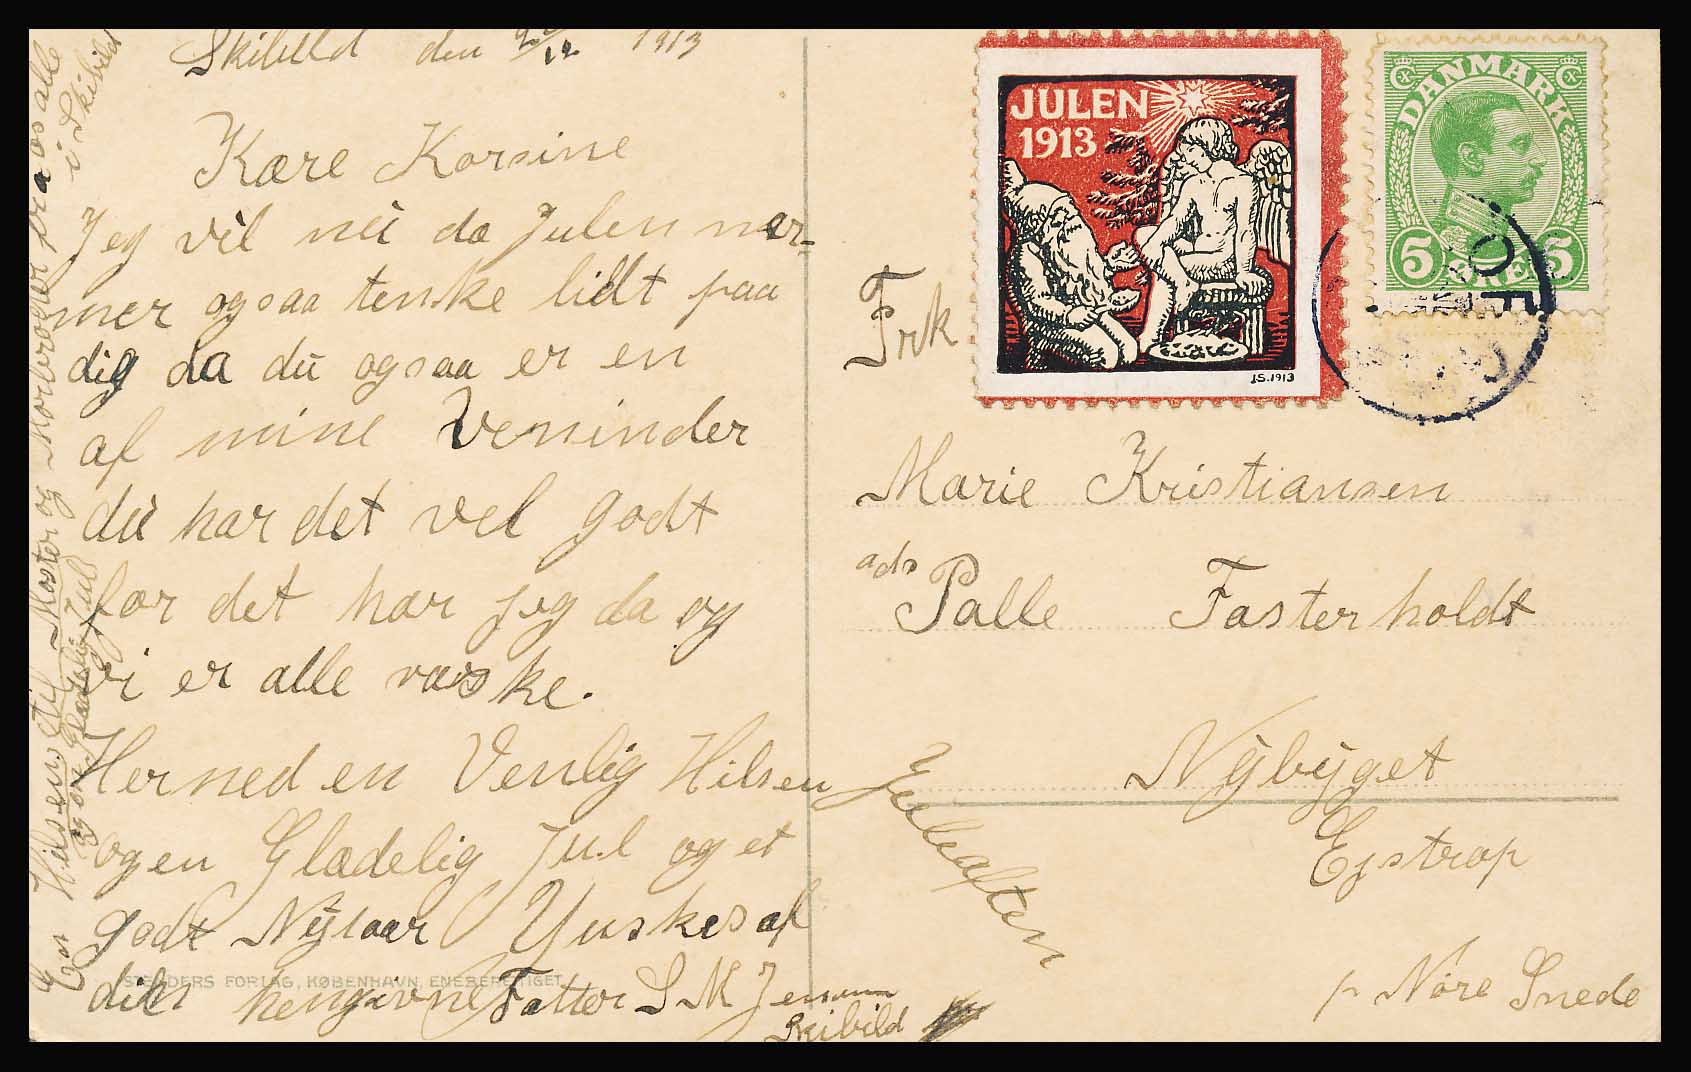 Skibild den 1913
Kære Korsine
Jeg vil nu da Julen nær-
mer ogsaa tenke lidt paa
dig da du ogsaa er en
af mine Veninder
du har det vel godt
for det har jeg da og
vi er alle raske.
Hermed en Venlig Hilsen
og en Glædelig Jul og et
godt Nytaar Ynskes af
din hengivne Fatter S M Jensen
Skibild
En Hilsen til Moster og Morbroder fra os alle
i Skibild
og en Glædelig Jul
STENDERS FORLAG, KØBENHAVN, ENEBERETTIGET
JULEN
1913
J.S. 1913
DANMARK
5 ØRE 5
Frk
Marie Kristiansen
ads
Palle Fasterholdt
Nybyget
Ejstrup
p Nøre Snede
Juleaften